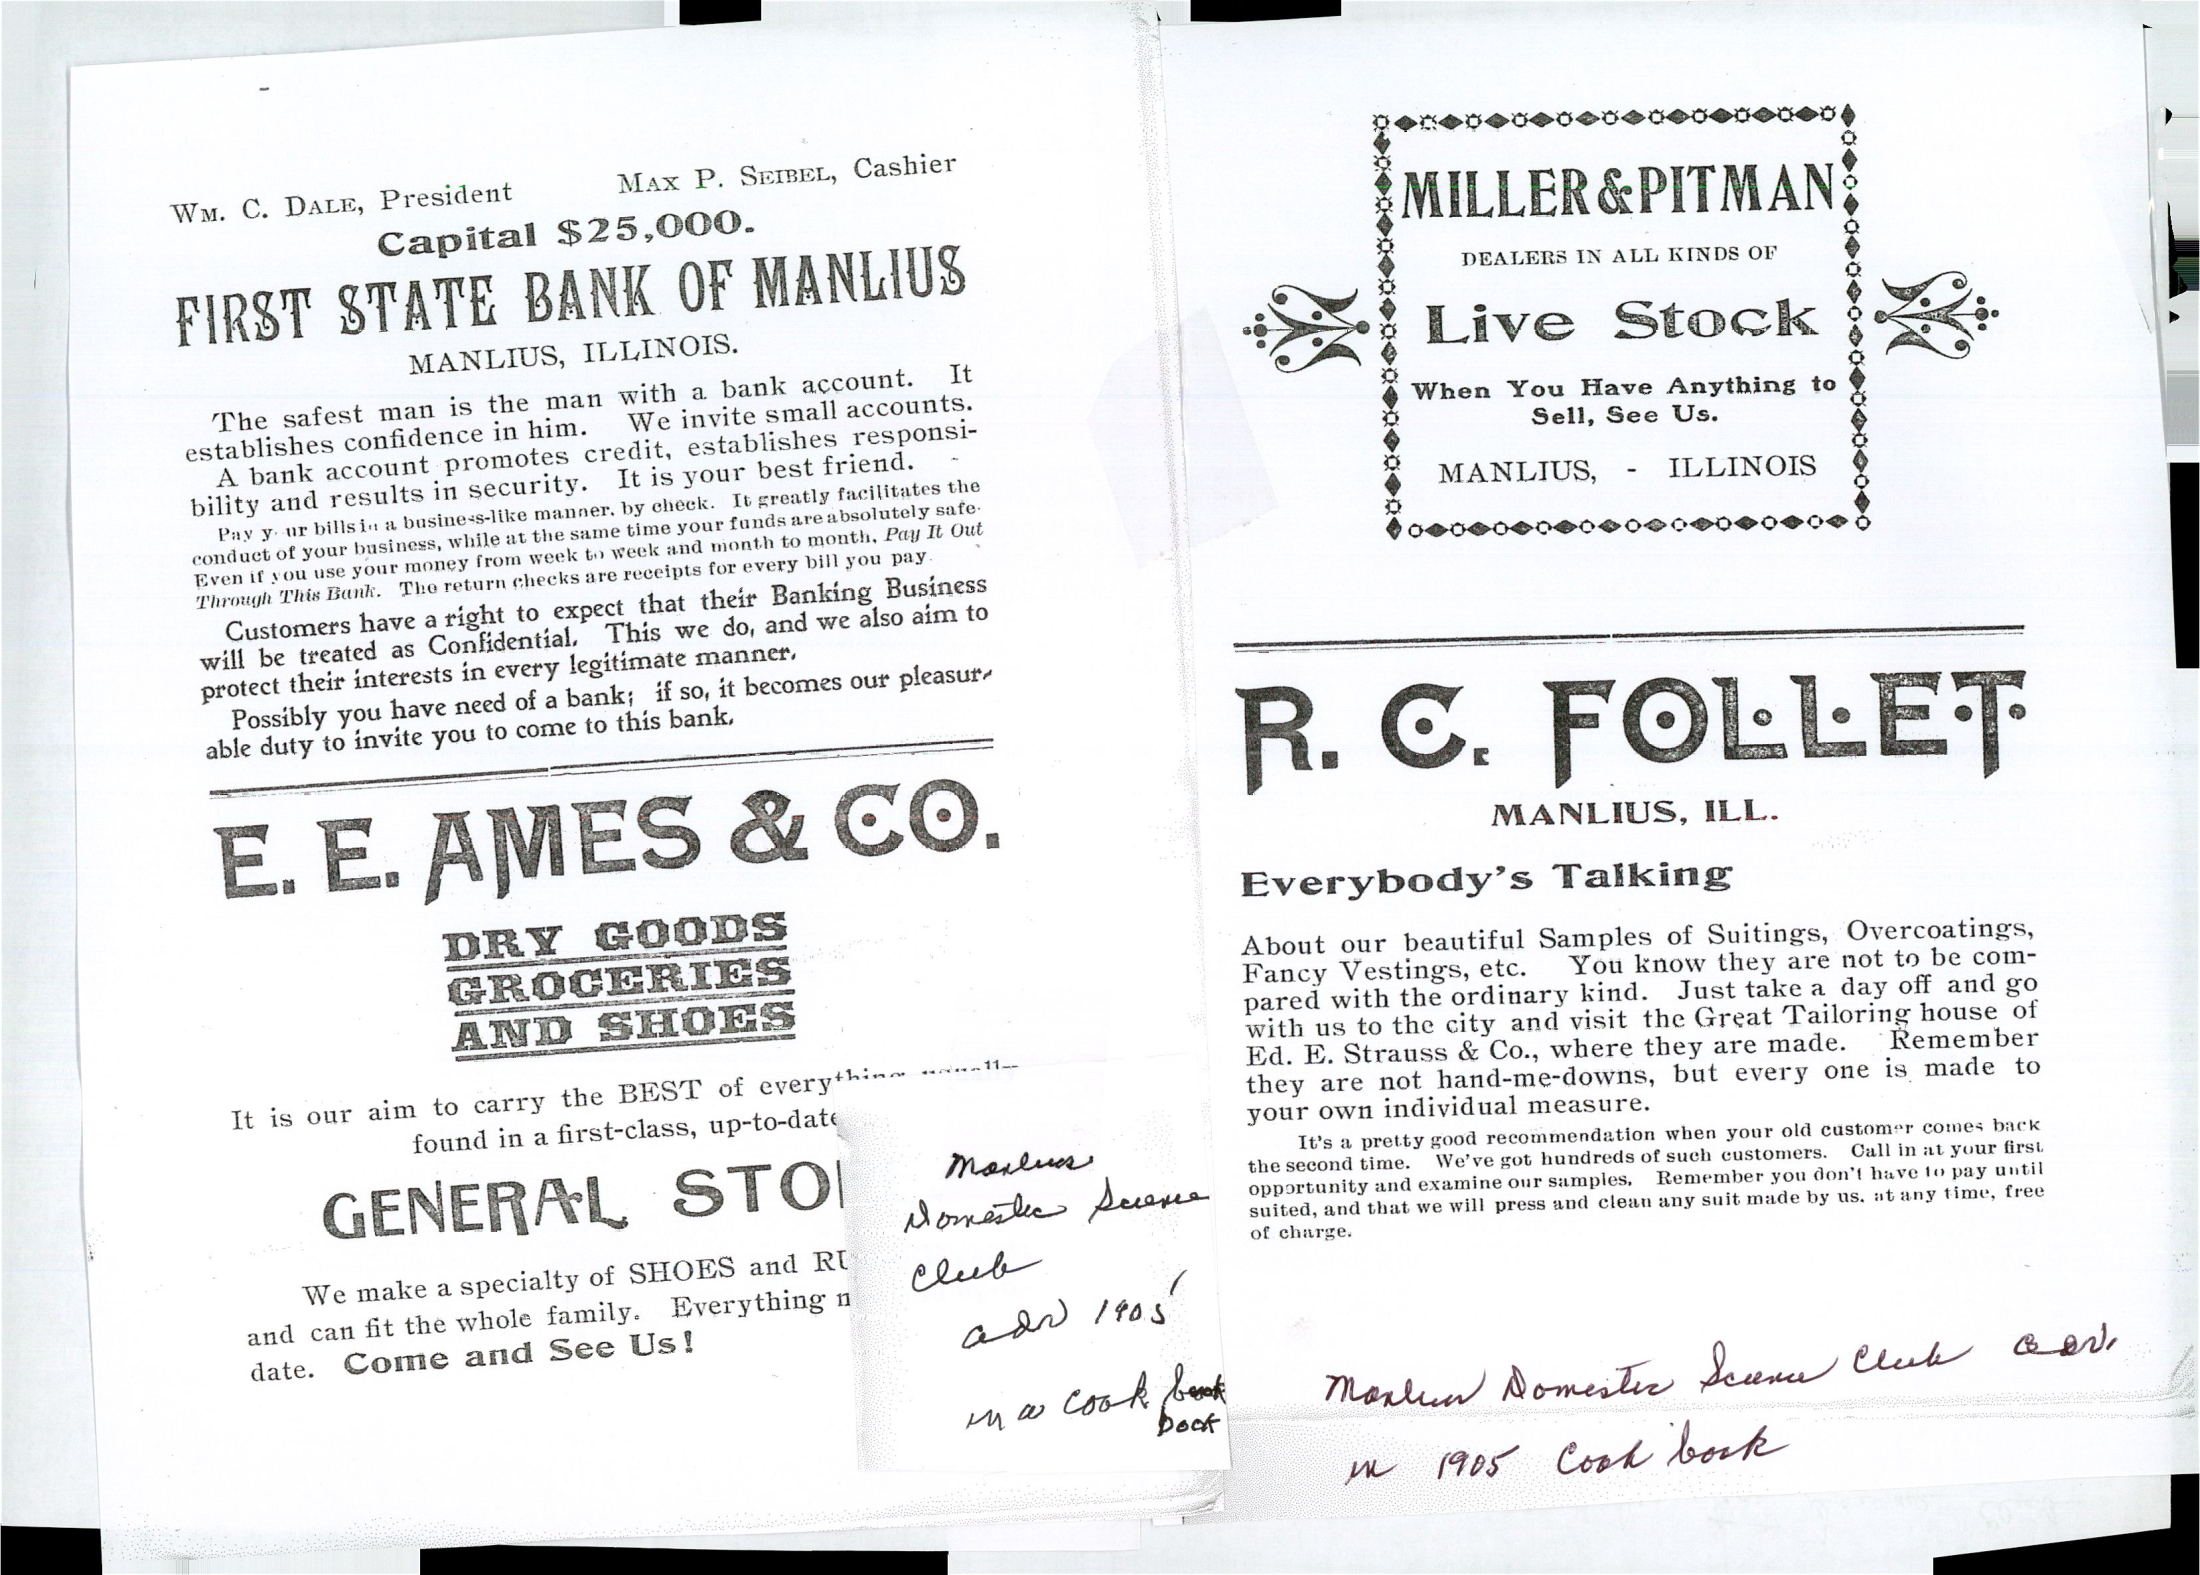 WM. C. DALE, President MAX P. SEIBEL, Cashier
Capital $25,000.
FIRST STATE BANK OF MANLIUS
MANLIUS, ILLINOIS.
The safest man is the man with a bank account. It
establishes confidence in him. We invite small accounts.
A bank account promotes credit, establishes responsi-
bility and results in security. It is your best friend.
Pay y ur bills in a business-like manner, by check. It greatly facilitates the
conduct of your business, while at the same time your funds are absolutely safe.
Even if you use your money from week to week and month to month, Pay It Out
Through This Bank. The return checks are receipts for every bill you pay.
Customers have a right to expect that their Banking Business
will be treated as Confidential. This we do, and we also aim to
protect their interests in every legitimate manner.
Possibly you have need of a bank; if so, it becomes our pleasur-
able duty to invite you to come to this bank.
E. E. AMES & CO.
DRY GOODS
GROCERIES
AND SHOES
It is our aim to carry the BEST of everything
found in a first-class, up-to-date
GENERAL STO
We make a specialty of SHOES and RU
and can fit the whole family. Everything n
date. Come and See Us!
Manlius
Domestic Science
Club
adv 1905
in a cook book
book
MILLER & PITMAN
DEALERS IN ALL KINDS OF
Live Stock
When You Have Anything to
Sell, See Us.
MANLIUS, - ILLINOIS
R. C. FOLLET
MANLIUS, ILL.
Everybody's Talking
About our beautiful Samples of Suitings, Overcoatings,
Fancy Vestings, etc. You know they are not to be com-
pared with the ordinary kind. Just take a day off and go
with us to the city and visit the Great Tailoring house of
Ed. E. Strauss & Co., where they are made. Remember
they are not hand-me-downs, but every one is made to
your own individual measure.
It's a pretty good recommendation when your old customer comes back
the second time. We've got hundreds of such customers. Call in at your first
opportunity and examine our samples. Remember you don't have to pay until
suited, and that we will press and clean any suit made by us, at any time, free
of charge.
Manlius Domestic Science Club adv.
in 1905 Cook book